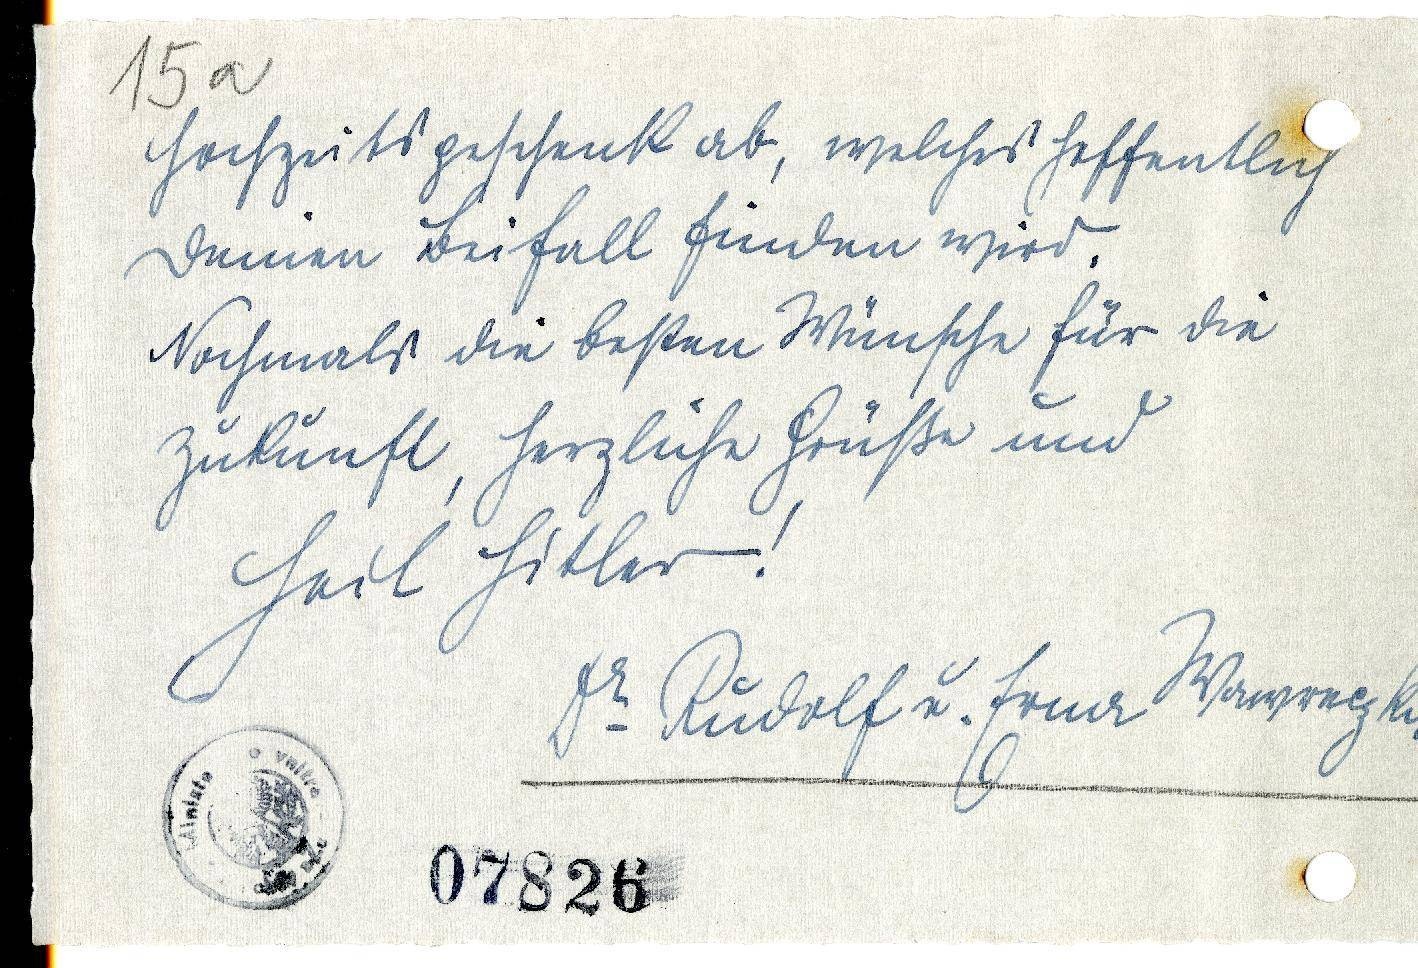 15a
Hochzeitsgeschenk ab, welches hoffentlich
Deinen Beifall finden wird.
Nochmals die besten Wünsche für die
Zukunft, herzliche Grüße und
Heil Hitler!
Dr Rudolf u. Erna
07826